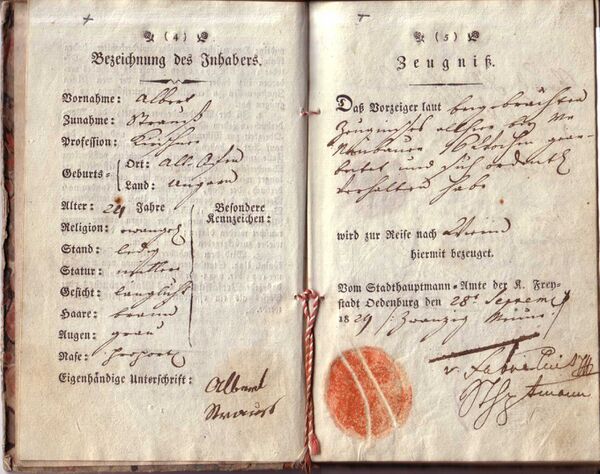 (4)
Bezeichnung des Inhabers.
Vornahme: Albert
Zunahme: Strauß
Profession:
Geburts- Ort:
Land: Ungarn
Alter: 24 Jahre
Religion: evangel
Stand: ledig
Statur: mittlere
Gesicht: länglicht
Haare: braun
Augen: grau
Nase: proport
Besondere
Kennzeichen:
Eigenhändige Unterschrift: Albert
Strauss
(5)
Zeugniß.
Daß Vorzeiger laut beygebrachten
Zeugnisses allhier bey
Neubauer 96 Wochen gear-
beitet und sich ordentl
verhalten habe
wird zur Reise nach Wien
hiermit bezeuget.
Vom Stadthauptmann-Amte der K. Frey-
stadt Oedenburg den 28t Septem
1829
v. Fabricius
Sthptmann